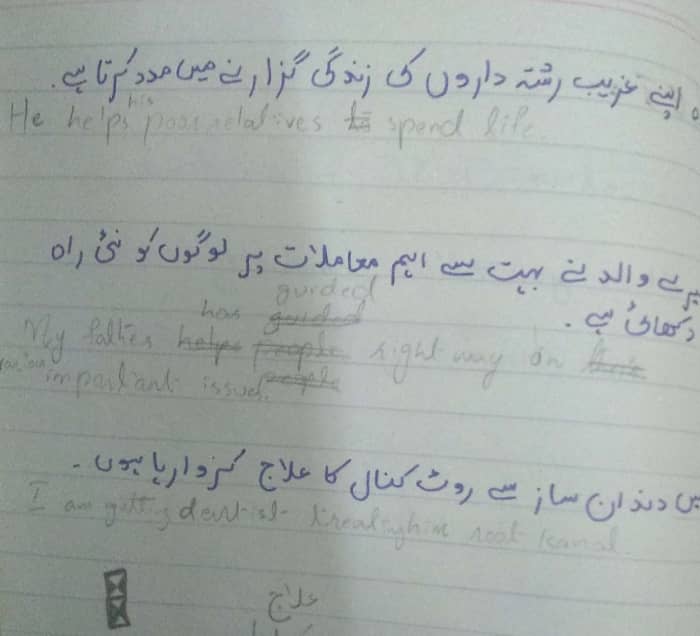 اپنے غریب رشتہ داروں کی زندگی گزارنے میں مدد کرتا ہے۔
He helps his poor relatives to spend life.
میرے والد نے بہت سے اہم معاملات پر لوگوں کو نئی راہ
دکھائی ہے۔
guided
has guided
My father helps people right way on
important issues. people
میں دندان ساز سے روٹ کنال کا علاج کروا رہا ہوں۔
I am getting dentist root kanal
علاج